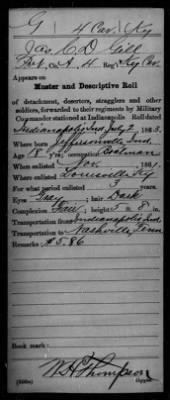 G 4 Cav. Ky
Jas. C. D. Gill
Pvt., Co. A. 4 Reg't Ky Cav.
Appears on
Muster and Descriptive Roll
of detachment, deserters, stragglers and other
soldiers, forwarded to their regiments by Military
Commander stationed at Indianapolis. Roll dated
Indianapolis Ind. July 2, 1863.
Where born Jeffersonville Ind.
Age 18 y'rs; occupation Boatman
When enlisted Nov. 186
Where enlisted Louisville Ky
For what period enlisted 3 years.
Eyes Gray; hair Dark
Complexion Fair; height 5 ft. 8 in.
Transportation from Indianapolis Ind.
Transportation to Nashville Tenn
Remarks: $5.86
Book mark:
W. H. Thompson
Copyist.